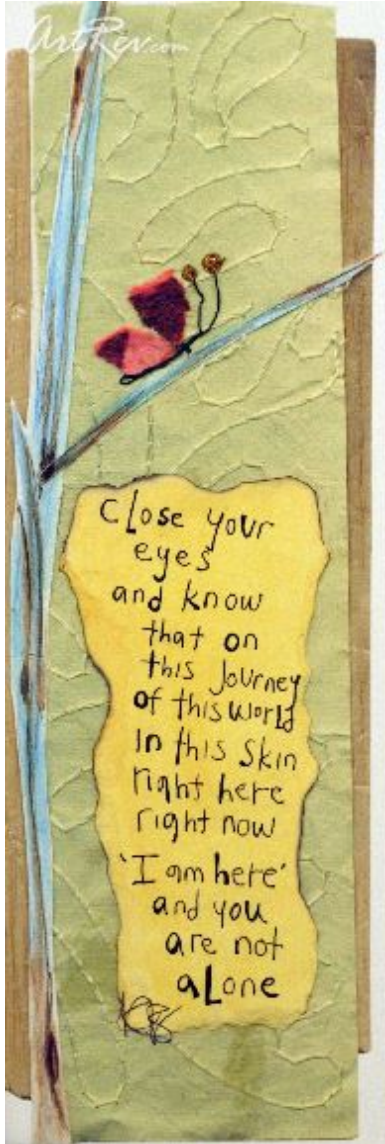 ArtRev.com
Close your
eyes
and know
that on
this Journey
of this world
In this skin
right here
right now
'I am here'
and you
are not
aLone